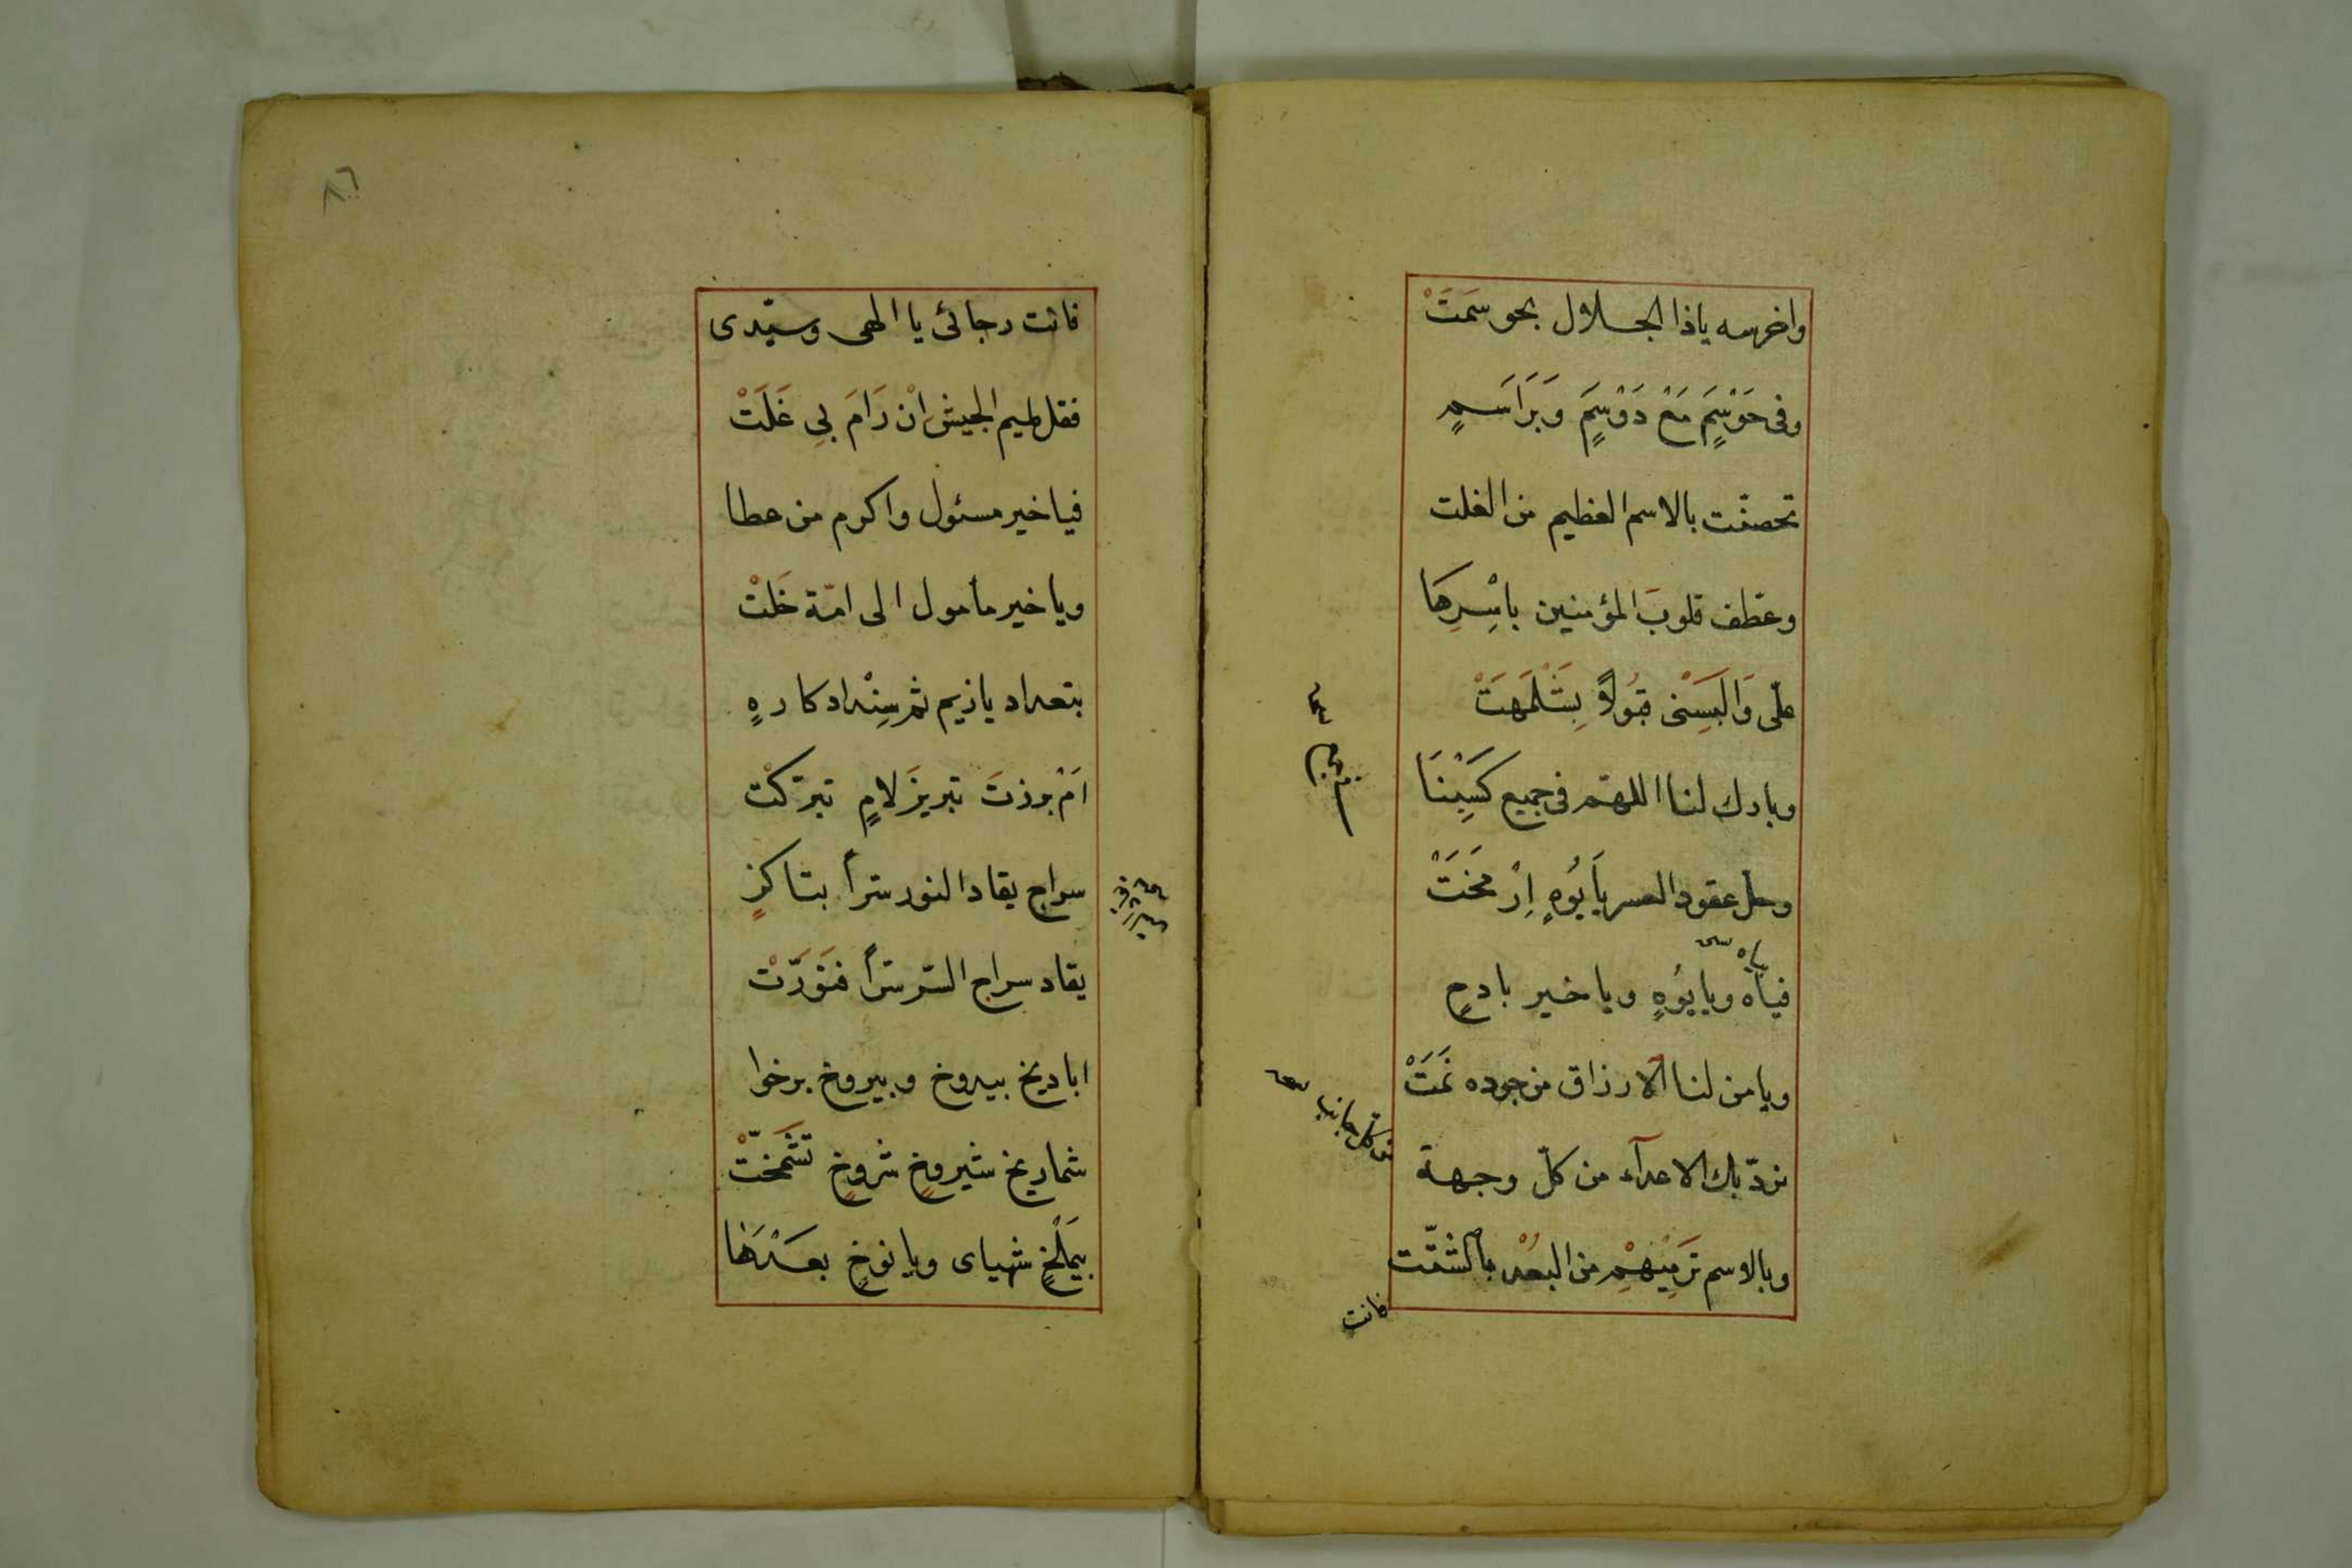 واخرسه ياذا الجلال بحوسمَتَْ
وفى حَوْسَمٍ مَعْ دَوْسَمٍ وَبَرَاسَمٍ
تحصنّت بالاسم العظيم من الغلت
وعطّف قلوبَ المؤمنين باسْرِهَا
علّى وَالَبسِنى قَبُولاً بِشَلْمَهَتْ
وبارك لنا اللهمّ فى جميع كَسْبِنَا
وحلّ عقود العسر يَايُوُهٍ اِرْمَخَتْ
فياَه ويايُوُهٍ وياخير بادحٍ
ويامن لنا الارزاق من جوده نَمَتْ
نردّ بك الاعدآء من كلّ وجهة
وبالاسم ترَمِيْهِمْ من البُعْد بالشتّت
من كلّ جانب
فانت
٨٦
فانت رجائى يا الهى وسيّدى
ففل لميم الجيش انْ رَامَ بِى غَلَتْ
فيا خير مسئول واكرم من عطا
وياخير مأمول الى امّة خَلَتْ
بتعداد ياذيم ثم سِنْدادكارهٍ
اَمْ برذتَ تبريزَ لامٍ تبرّكتْ
سراج يقاد النور سّراً بتاكزٍ
يقاد سراج السّر سّراً فنَوَرّتْ
اباديخ بيدوخ وبيروخ برخوا
شماريخ شيروخٍ شروخٍ تَشَمَّخَتْ
بيَمَلْخٍ شهياى ويانوخٍ بعَدْهَا